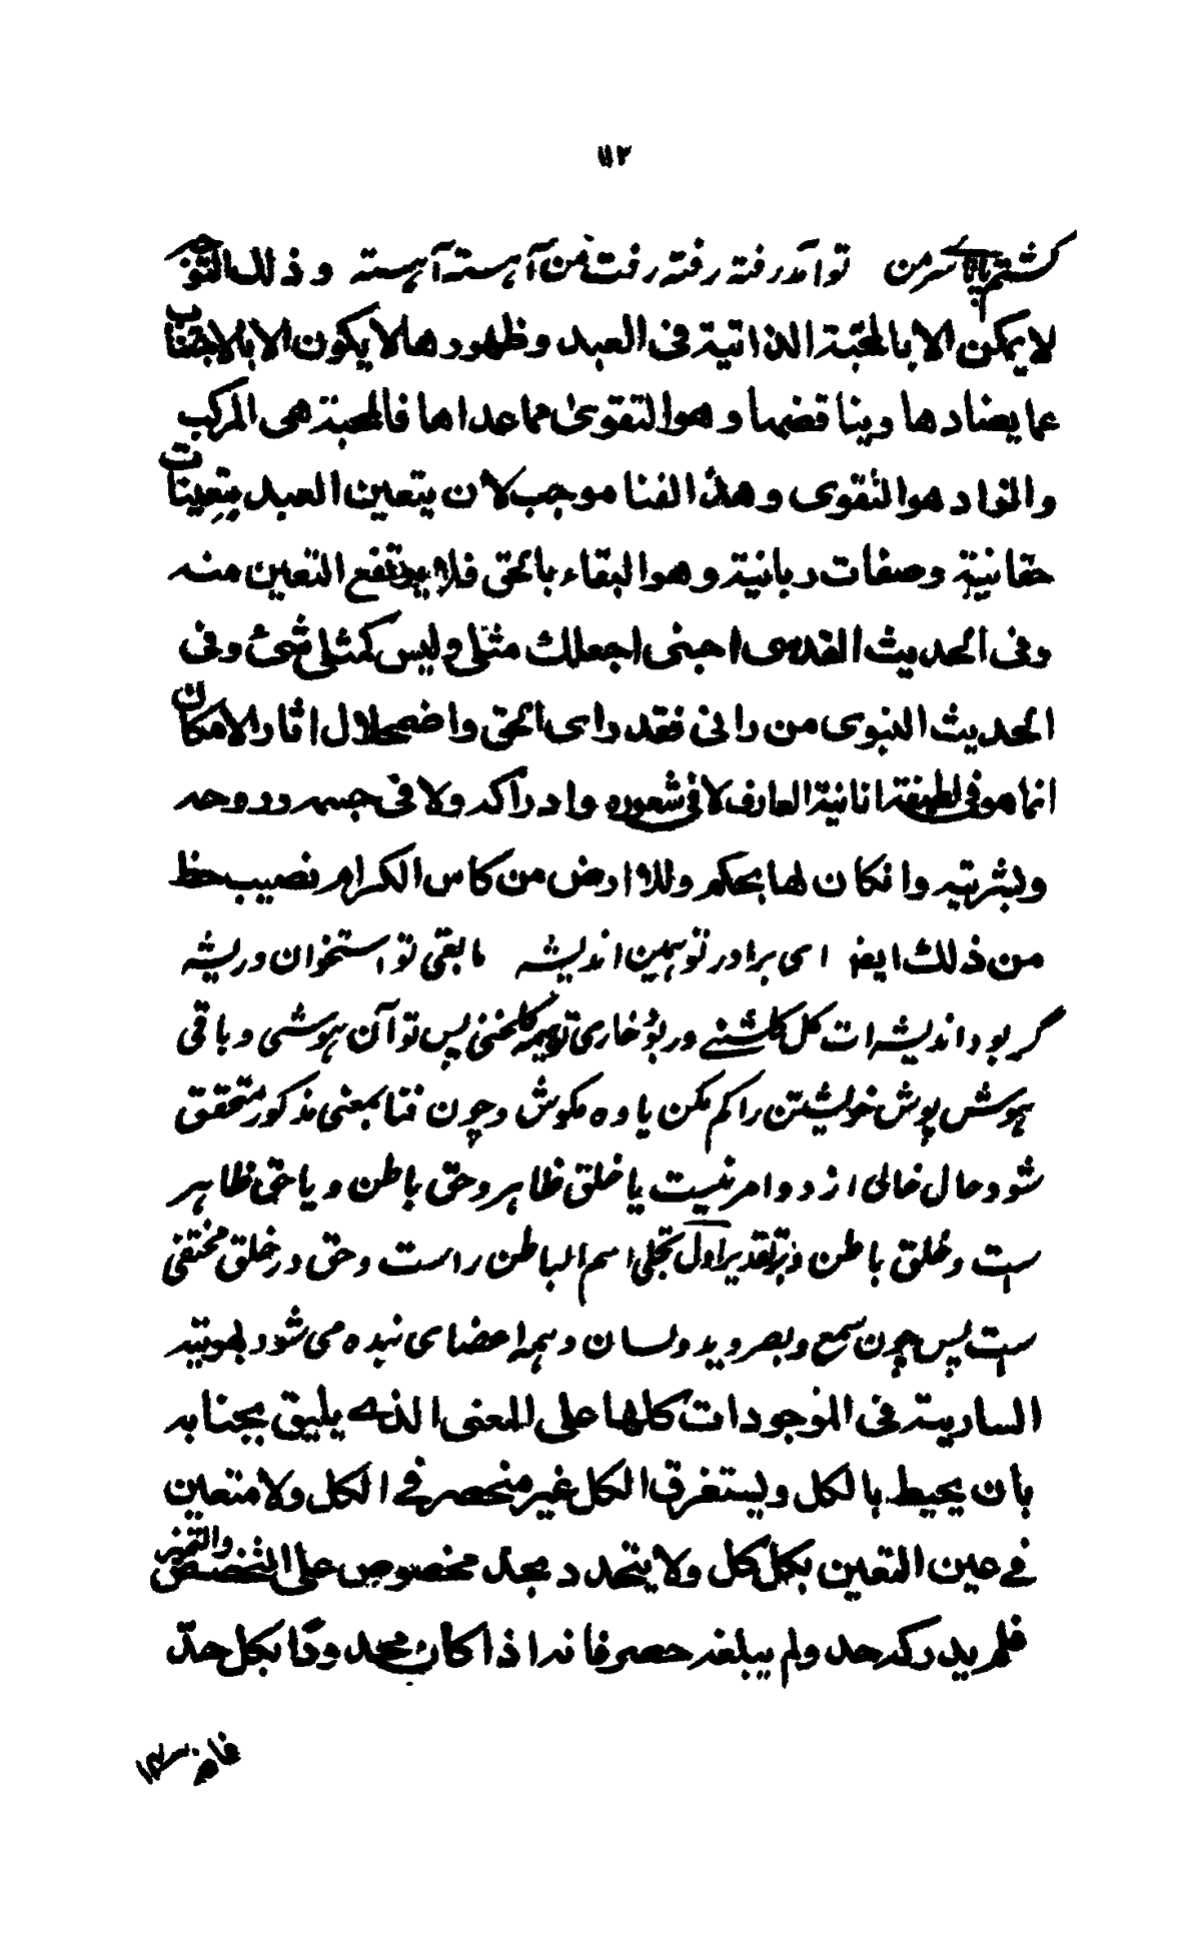 ١١٢
گشتم پا بسر من تو آمد رفته رفته رفت من آهسته آهسته وذلك التوجه
لا يمكن الا بالمحبة الذاتية في العبد وظهورها لا يكون الا بالاجتناب
عما يضادها ويناقضها وهو التقوى مما عداها فالمحبة هى المركب
والزاد هو التقوى وهذا الفنا موجب لان يتعين العبد بتعينات
حقانية وصفات ربانية وهو البقاء بالحق فلا يرتفع التعين منه
وفى الحديث القدسى اجعلك مثلى وليس كمثلى شئ وفى
الحديث النبوى من رانى فقد راى الحق واضمحلال اثار الامكان
انما هو فى لطيفة انانية العارف لا فى شعوره وادراكه ولا فى جسمه وروحه
وبشريته وانكان لها بحكم وللارض من كاس الكرام نصيب حظ
من ذلك ايضا اى برادر تو همين انديشه مابقى تو استخوان وريشه
گر بود انديشه ات گل گلشنے ور بود خارى تو هيمه گلخنى پس تو آن هوشى وباقى
هوش پوش خويشتن را گم مكن ياوه مكوش وچون فنا بمعنى مذكور متحقق
شود حال خالى از دو امر نيست يا خلق ظاهر وحق باطن ويا حق ظاهر
ست وخلق باطن وبر تقدير اول تجلى اسم الباطن راست وحق در خلق مختفى
ست پس چون سمع وبصر ويد ولسان وهمه اعضاى بنده مى شود بهويته
السارية فى الموجودات كلها على المعنى الذے يليق بجنابه
بان يحيط بالكل ويستغرق الكل غير منحصر فے الكل ولا متعين
فے عين التعين بكل كل ولا يتحدد بحد مخصوص على التشخص والتميز
فلم يدركه حد ولم يبلغه حصر فانه اذا كان محدودًا بكل حدّ